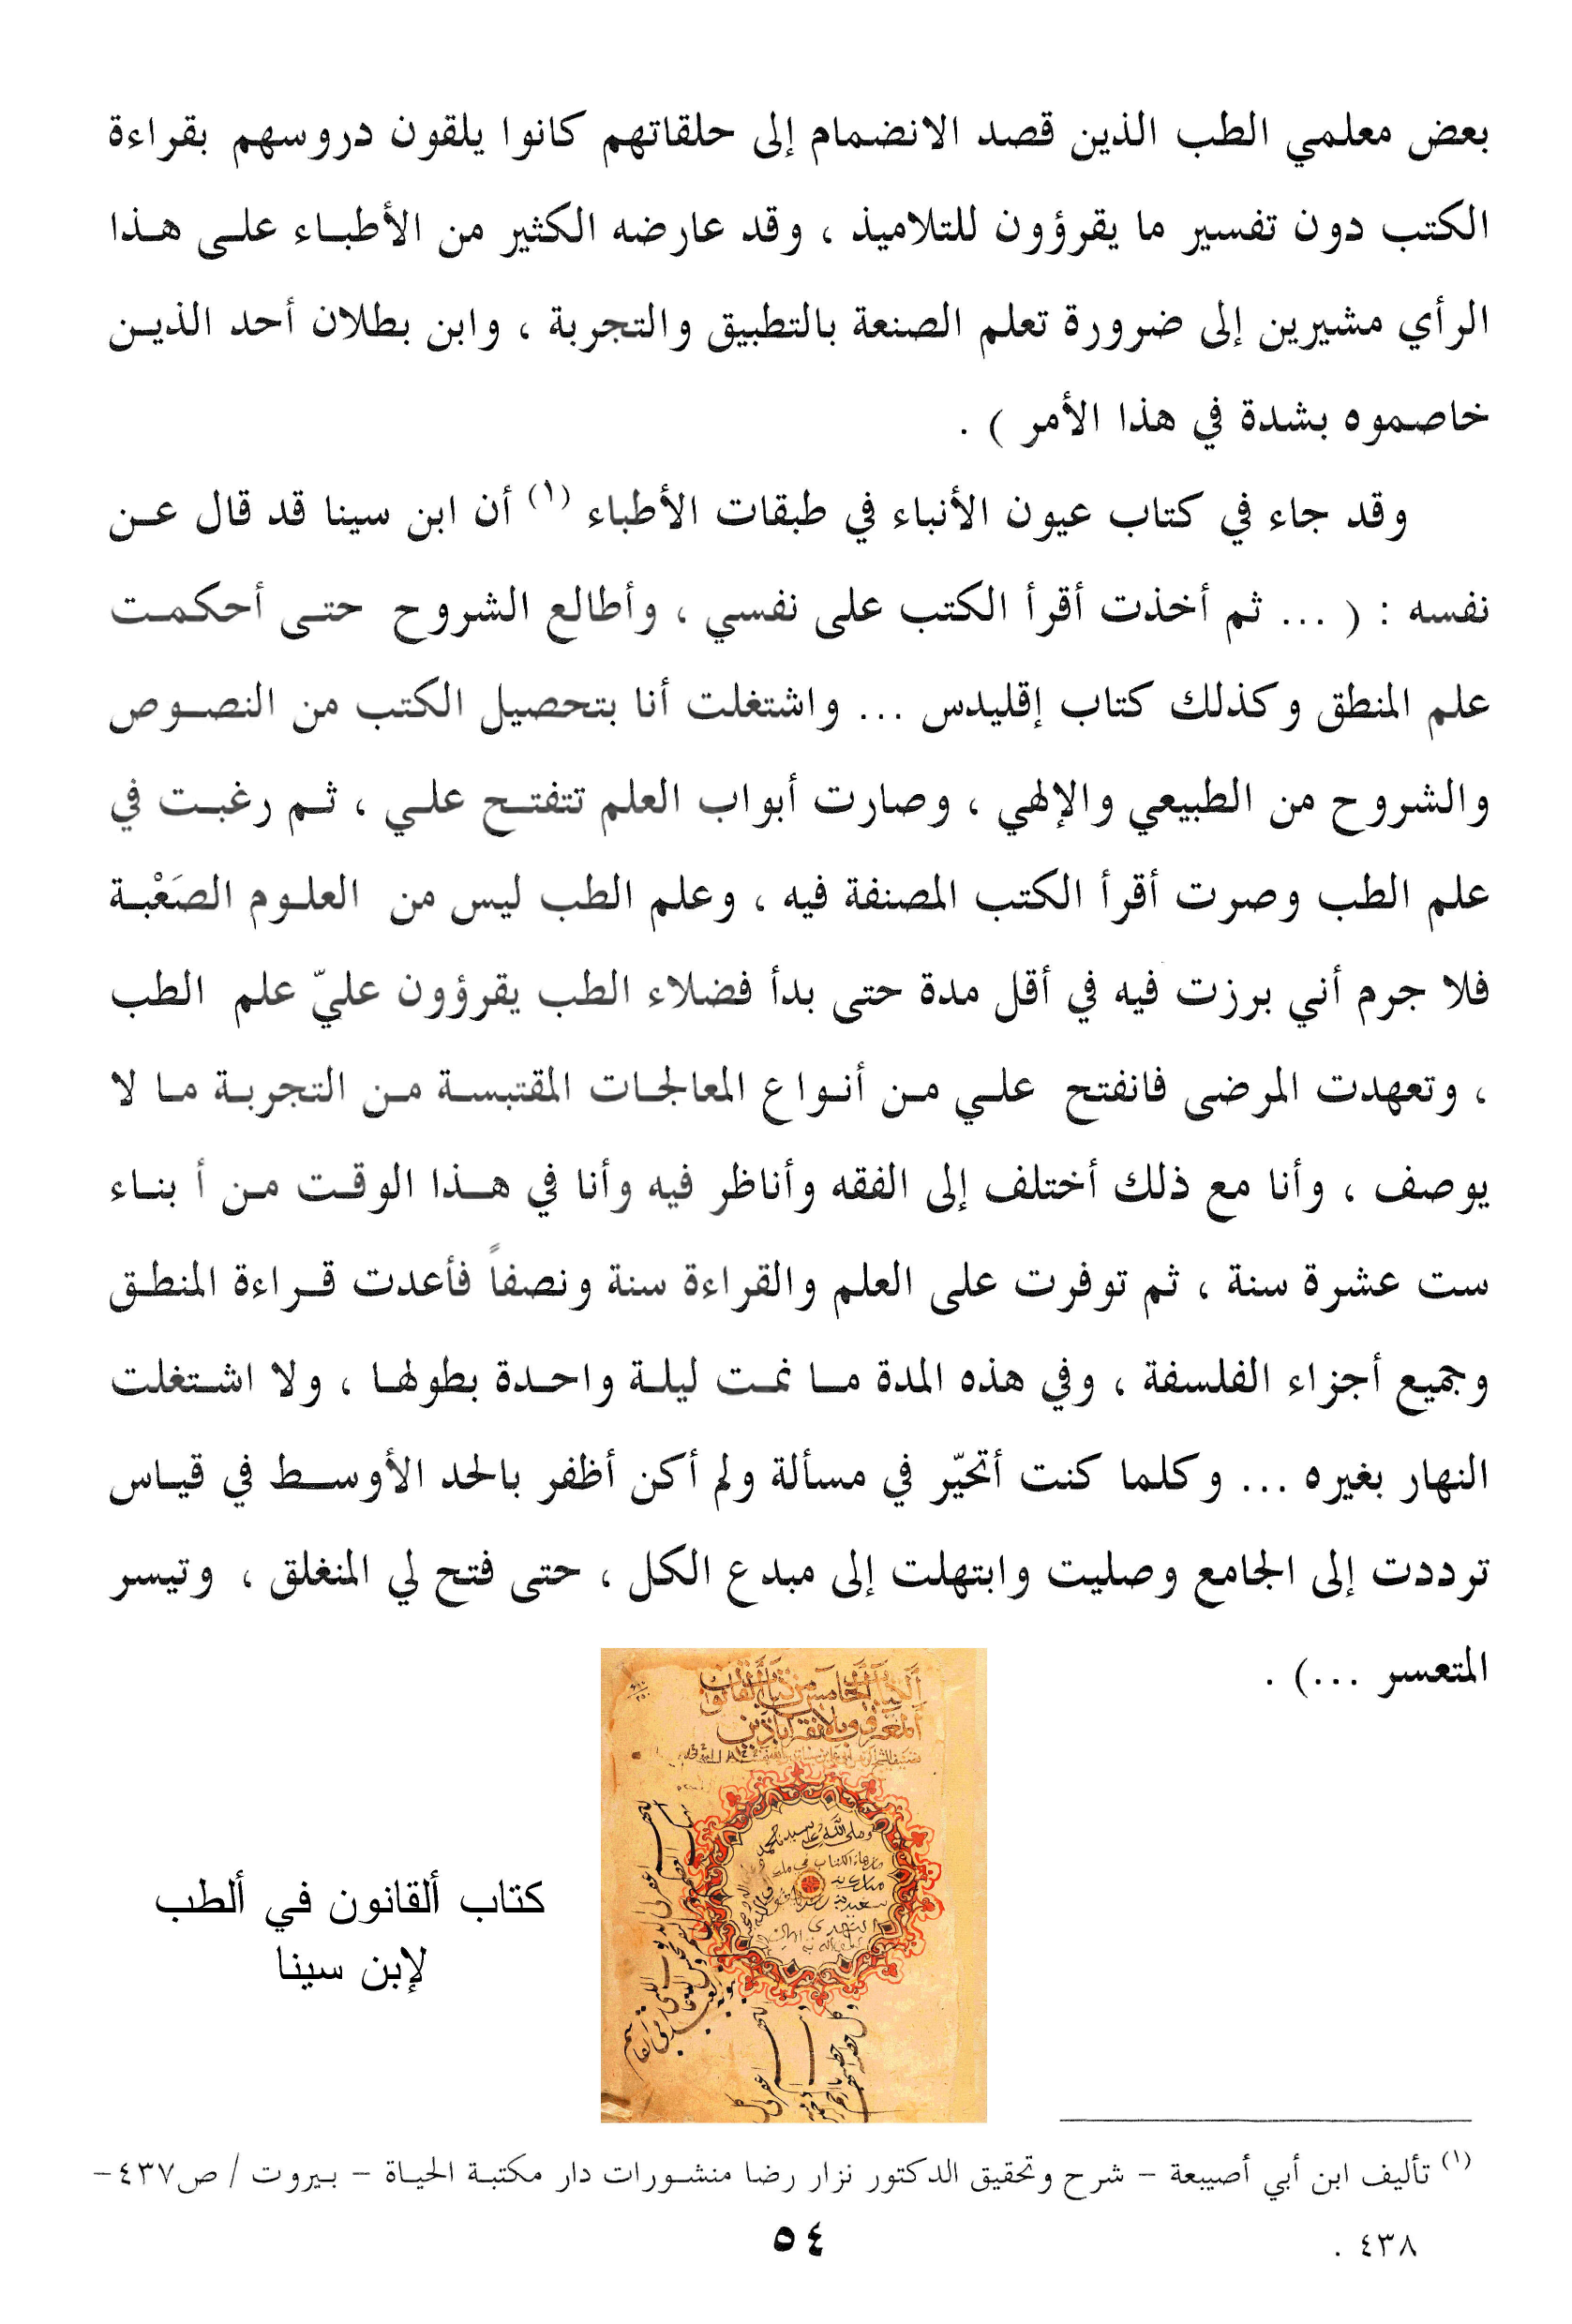 بعض معلمي الطب الذين قصد الانضمام إلى حلقاتهم كانوا يلقون دروسهم بقراءة
الكتب دون تفسير ما يقرؤون للتلاميذ ، وقد عارضه الكثير من الأطباء على هذا
الرأي مشيرين إلى ضرورة تعلم الصنعة بالتطبيق والتجربة ، وابن بطلان أحد الذين
خاصموه بشدة في هذا الأمر ) .
وقد جاء في كتاب عيون الأنباء في طبقات الأطباء (١) أن ابن سينا قد قال عن
نفسه : ( ... ثم أخذت أقرأ الكتب على نفسي ، وأطالع الشروح حتى أحكمت
علم المنطق وكذلك كتاب إقليدس ... واشتغلت أنا بتحصيل الكتب من النصوص
والشروح من الطبيعي والإلهي ، وصارت أبواب العلم تتفتح علي ، ثم رغبت في
علم الطب وصرت أقرأ الكتب المصنفة فيه ، وعلم الطب ليس من العلوم الصَعْبة
فلا جرم أني برزت فيه في أقل مدة حتى بدأ فضلاء الطب يقرؤون عليّ علم الطب
، وتعهدت المرضى فانفتح علي من أنواع المعالجات المقتبسة من التجربة ما لا
يوصف ، وأنا مع ذلك أختلف إلى الفقه وأناظر فيه وأنا في هذا الوقت من أ بناء
ست عشرة سنة ، ثم توفرت على العلم والقراءة سنة ونصفاً فأعدت قراءة المنطق
وجميع أجزاء الفلسفة ، وفي هذه المدة ما نمت ليلة واحدة بطولها ، ولا اشتغلت
النهار بغيره ... وكلما كنت أتحيّر في مسألة ولم أكن أظفر بالحد الأوسط في قياس
ترددت إلى الجامع وصليت وابتهلت إلى مبدع الكل ، حتى فتح لي المنغلق ، وتيسر
المتعسر ...) .
كتاب ألقانون في ألطب
لإبن سينا
(١) تأليف ابن أبي أصيبعة – شرح وتحقيق الدكتور نزار رضا منشورات دار مكتبة الحياة – بيروت / ص٤٣٧–
٤٣٨ .
٥٤